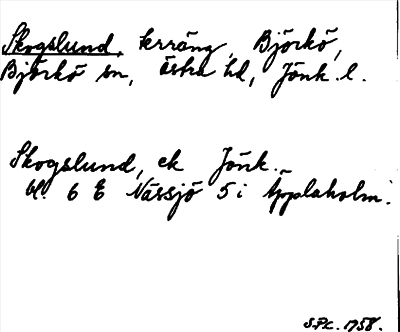 Skogslund, terräng, Björkö,
Björkö sn, östra hd, Jönk. l.
Skogslund, ek Jönk.
bl. 6 E Nässjö 5 i Äpplaholm.
S.P.L. 1958.